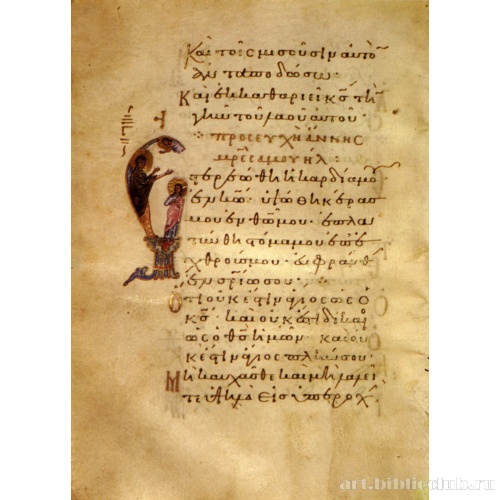 Καὶ τοῖς μισοῦσιν αὐτὸν
ἀνταποδώσει·
Καὶ ἐκκαθαριεῖ κς τὴν
γῆν τοῦ λαοῦ αὐτοῦ·
ΠΡΟΣΕΥΧῊ ἌΝΝΗΣ
ΜΡΣ ΣΑΜΟΥΉΛ·
Ἐστερεώθη ἡ καρδία μου
ἐν κω· ὑψώθη κέρας
μου ἐν θω μου· ἐπλα
τύνθη τὸ στόμα μου ἐπ ἐ
χθρούς μου· εὐφράνθην
ἐν σρία σου·
Ὅτι οὐκ ἔστιν ἅγιος ὡς ὁ
κς· καὶ οὐκ ἔστι δίκαιος
ὡς ὁ θς ἡμῶν· καὶ οὐκ
ἔστιν ἅγιος πλήν σου·
Μὴ καυχᾶσθε καὶ μὴ λαλεῖ
τε ὑψηλὰ εἰς ὑπεροχήν·
art.biblioclub.ru